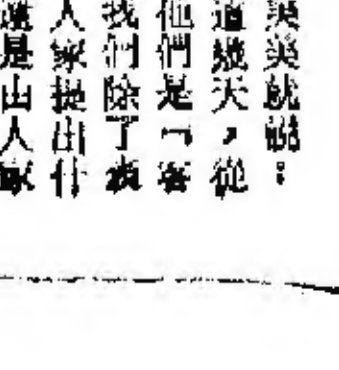 美就說：
道幾天，從
他們是「客
我們除了表
人家提出什
還是由人家